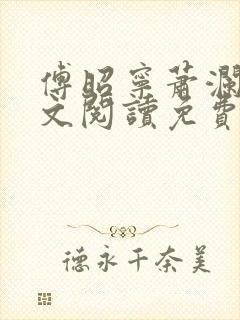 傅昭寧蕭瀾
文閱讀免費
德永千奈美